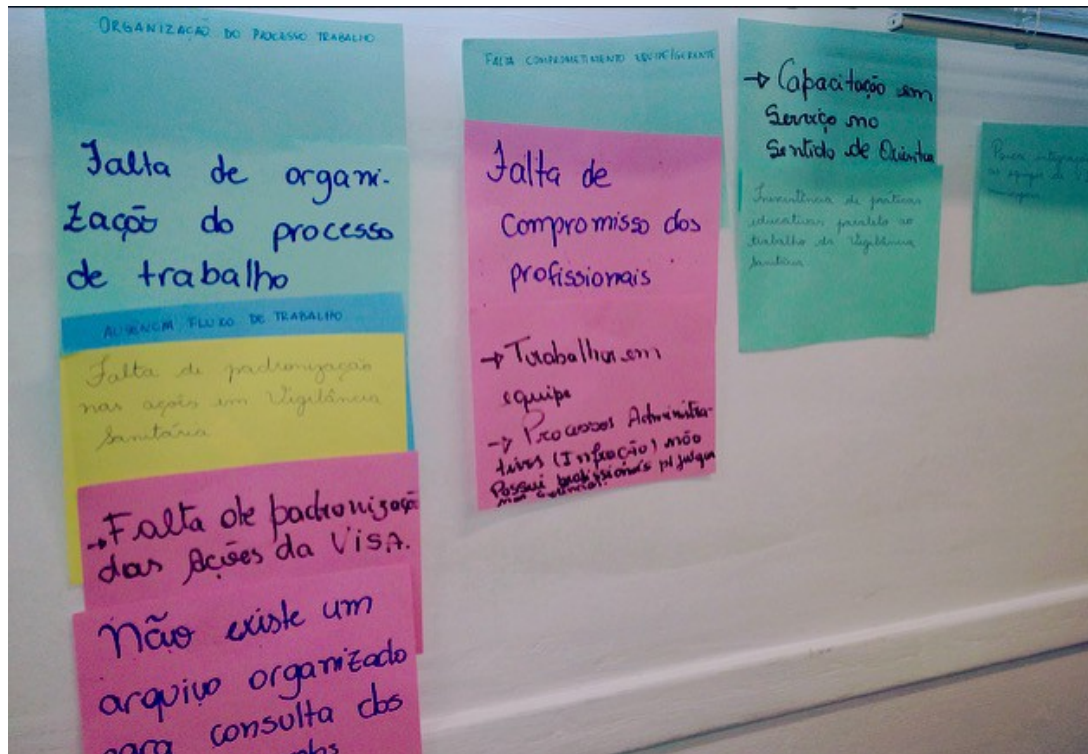 ORGANIZAÇÃO DO PROCESSO TRABALHO
Falta de organi-
zação do processo
de trabalho
AUSENCIA FLUXO DE TRABALHO
Falta de padronização
nas ações em Vigilância
Sanitária
→Falta de padronizaçã
das Ações da VISA.
Não existe um
arquivo organizado
para consulta dos
FALTA COMPROMETIMENTO EQUIPE/GERENTE
Falta de
compromisso dos
profissionais
→ Trabalhar em
equipe
→ Processos Administra-
tivos (Infração) não
Possui profissionais p/ julgar
→ Capacitação em
Serviço no
Sentido de Orientar
Inexistência de práticas
educativas paralelo ao
trabalho da Vigilância
Sanitária
Pouca integração